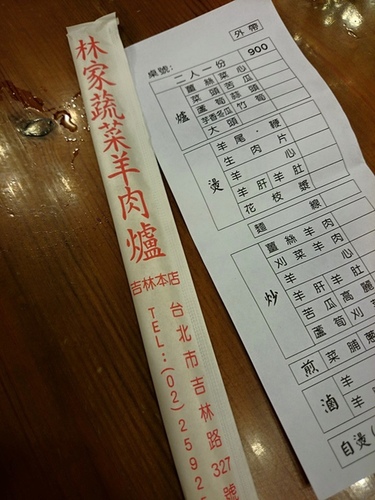 林家蔬菜羊肉爐
吉林本店
台北市吉林路327號
TEL:(02)2592
外帶
桌號:
二人一份 900
爐
薑絲菜心
菜頭苦瓜
蘆筍蒜頭
芋香冬瓜竹筍
大頭
燙
羊尾.鞭
生肉片
羊心
羊肝羊肚
花枝漿
麵線
炒
薑絲羊肉
刈菜羊肉
羊心
羊肝羊肚
苦瓜高麗
蘆筍刈
煎
菜脯蔥
滷
羊
羊
自燙(